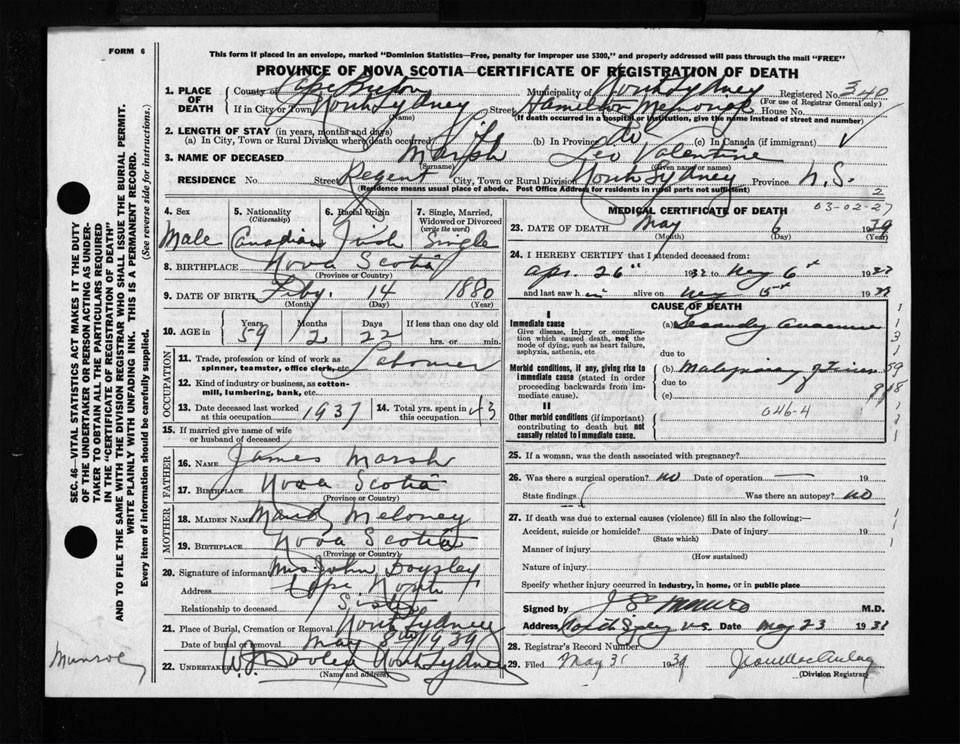 FORM 6
This form if placed in an envelope, marked "Dominion Statistics—Free, penalty for improper use $300," and properly addressed will pass through the mail "FREE"
PROVINCE OF NOVA SCOTIA—CERTIFICATE OF REGISTRATION OF DEATH
1. PLACE OF DEATH County of Cape Breton Municipality of North Sydney Registered No. 340
(For use of Registrar General only)
If in City or Town North Sydney Street Hamilton Memorial House No.
(Name) (If death occurred in a hospital or institution, give the name instead of street and number)
2. LENGTH OF STAY (in years, months and days)
(a) In City, Town or Rural Division where death occurred Life (b) In Province do (c) In Canada (if immigrant) ✓
3. NAME OF DECEASED Marsh Leo Valentine
(Surname) (Given name or names)
RESIDENCE No. Street Regent City, Town or Rural Division North Sydney Province N.S.
(Residence means usual place of abode. Post Office Address for residents in rural parts not sufficient)
SEC. 46—VITAL STATISTICS ACT MAKES IT THE DUTY
OF THE UNDERTAKER OR PERSON ACTING AS UNDER-
TAKER TO OBTAIN ALL THE PARTICULARS REQUIRED
IN THE "CERTIFICATE OF REGISTRATION OF DEATH"
AND TO FILE THE SAME WITH THE DIVISION REGISTRAR WHO SHALL ISSUE THE BURIAL PERMIT.
WRITE PLAINLY WITH UNFADING INK. THIS IS A PERMANENT RECORD.
Every item of information should be carefully supplied. (See reverse side for instructions.)
Munroe
4. Sex 5. Nationality (Citizenship) 6. Racial Origin 7. Single, Married, Widowed or Divorced (write the word)
Male Canadian Irish Single
8. BIRTHPLACE Nova Scotia
(Province or Country)
9. DATE OF BIRTH Feby. 14 1880
(Month) (Day) (Year)
10. AGE in Years Months Days If less than one day old
59 2 22 hrs. or min.
OCCUPATION
11. Trade, profession or kind of work as spinner, teamster, office clerk, etc. Labourer
12. Kind of industry or business, as cotton-mill, lumbering, bank, etc.
13. Date deceased last worked at this occupation 1937 14. Total yrs. spent in this occupation 43
15. If married give name of wife or husband of deceased
FATHER
16. NAME James Marsh
17. BIRTHPLACE Nova Scotia
(Province or Country)
MOTHER
18. MAIDEN NAME Meloney
19. BIRTHPLACE Nova Scotia
(Province or Country)
20. Signature of informant Mrs John
Address North
Relationship to deceased Sister
21. Place of Burial, Cremation or Removal North Sydney
Date of burial or removal May 8th 1939
22. UNDERTAKER North Sydney
(Name and address)
2
MEDICAL CERTIFICATE OF DEATH 03-02-27
23. DATE OF DEATH May 6 1939
(Month) (Day) (Year)
24. I HEREBY CERTIFY that I attended deceased from:
Apr. 26th 19 to May 6th 19
and last saw him alive on May 5th 19
CAUSE OF DEATH
I
Immediate cause (a) Secondary
Give disease, injury or complication which caused death, not the mode of dying, such as heart failure, asphyxia, asthenia, etc
due to
Morbid conditions, if any, giving rise to immediate cause (stated in order proceeding backwards from immediate cause). (b)
due to
(c)
II 046-4
Other morbid conditions (if important) contributing to death but not causally related to immediate cause.
25. If a woman, was the death associated with pregnancy?
26. Was there a surgical operation? no Date of operation — 19
State findings Was there an autopsy? no
27. If death was due to external causes (violence) fill in also the following:—
Accident, suicide or homicide? Date of injury 19
(State which)
Manner of injury
(How sustained)
Nature of injury
Specify whether injury occurred in industry, in home, or in public place
Signed by M.D.
Address North Sydney N.S. Date May 23 19
28. Registrar's Record Number
29. Filed May 31 1939
(Division Registrar)